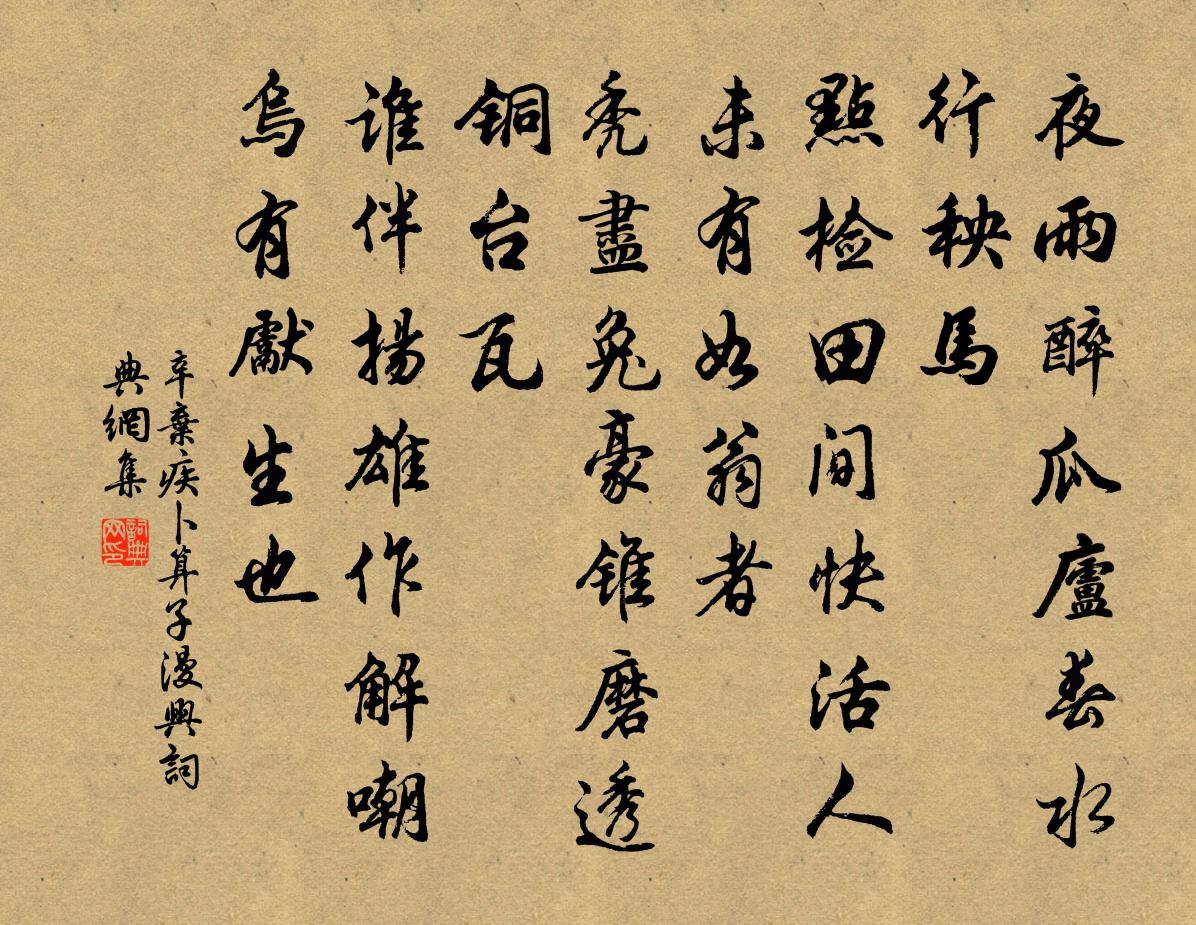 夜雨醉瓜廬春水
行秧馬
點检田間快活人
未有如翁者
秃盡兔豪錐磨透
铜台瓦
谁伴揚雄作解嘲
烏有獻生也
辛棄疾卜算子漫興詞
典網集
詞典网印